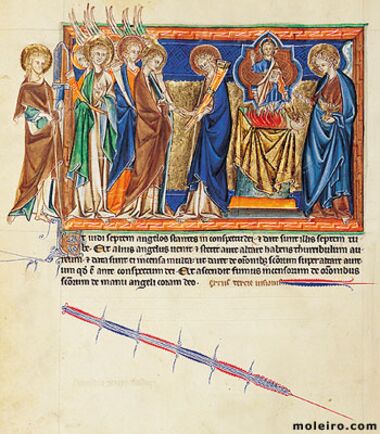 Et uidi septem angelos stantes in conspectu dei. & date sunt illis septem tu
be. Et alius angelus uenit & stetit ante altare habens thuribulum au
reum & data sunt ei incensa multa: ut daret de orōnibȝ scōrum super altare aure
um qđ ē ante conspectum dei Et ascendit fumus incensorum de orōnibus
scōrum de manu angeli coram deo. tercie uisionis
moleiro.com